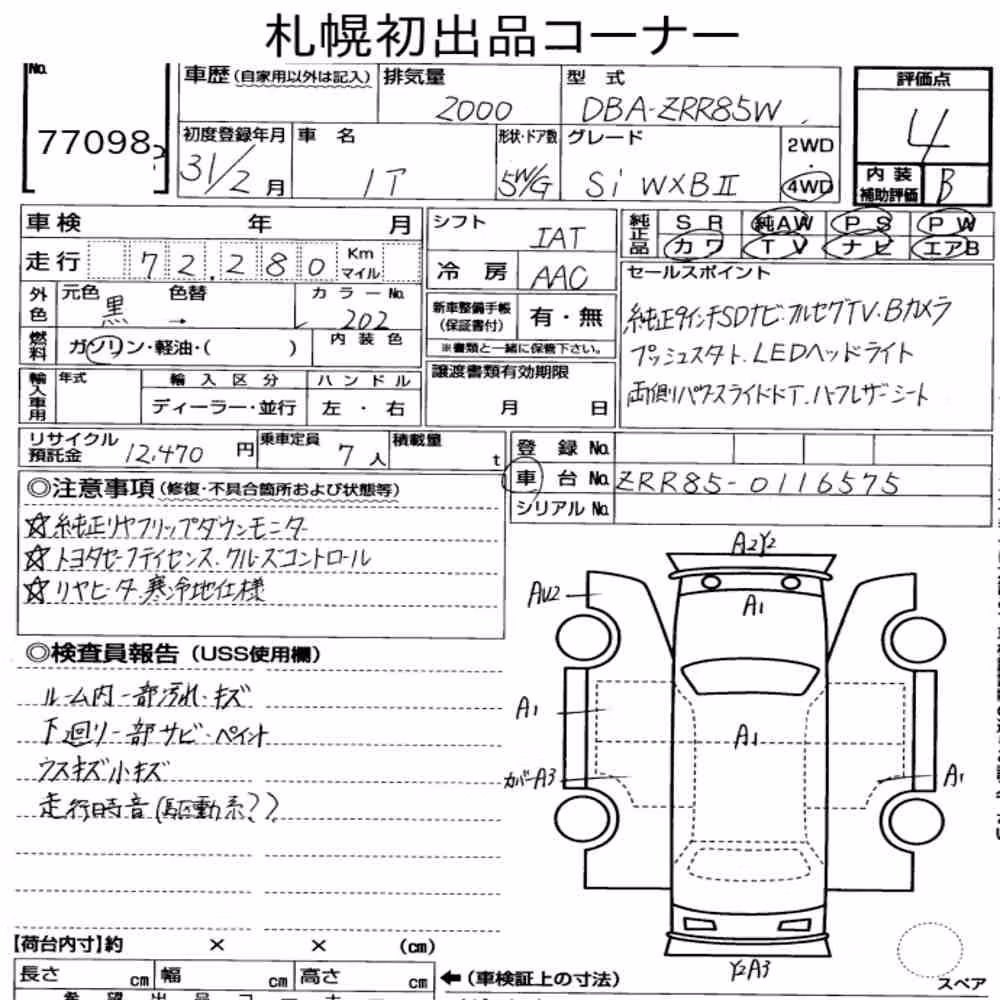 札幌初出品コーナー
No.
77098
車歴(自家用以外は記入) 排気量 型式 評価点
2000 DBA-ZRR85W 4
初度登録年月 車名 形状・ドア数 グレード 2WD
31/2月 5W/G Si WXBⅡ 4WD
内装補助評価 B
車検 年 月 シフト IAT 純正品 SR 純AW PS PW
走行 72.280 Km マイル 冷房 AAC カワ TV ナビ エアB
外色 元色 黒 → 色替 カラーNo. 202 新車整備手帳(保証書付) 有・無 セールスポイント
燃料 ガソリン・軽油・( ) 内装色 ※書類と一緒に保管下さい。
純正9インチSDナビ・フルセグTV.Bカメラ
プッシュスタート.LEDヘッドライト
両側パワースライドドT.ハーフレザーシート
輸入車用 年式 輸入区分 ハンドル 譲渡書類有効期限
ディーラー・並行 左・右 月 日
リサイクル預託金 12,470円 乗車定員 7人 積載量 t 登録No.
車台No. ZRR85-0116575
シリアルNo.
◎注意事項(修復・不具合箇所および状態等)
☆純正リヤフリップダウンモニター
☆トヨタセーフティセンス.クルーズコントロール
☆リヤヒーター.寒冷地仕様
◎検査員報告(USS使用欄)
ルーム内一部汚れ・キズ
下廻り一部サビ・ペイント
ウスキズ小キズ
走行時音(駆動系??)
A2Y2
AU2
A1
A1
A1
カバーA3
A1
Y2A3
【荷台内寸】約 × × (cm)
長さ cm 幅 cm 高さ cm ←(車検証上の寸法)
スペア
希望出品コーナー